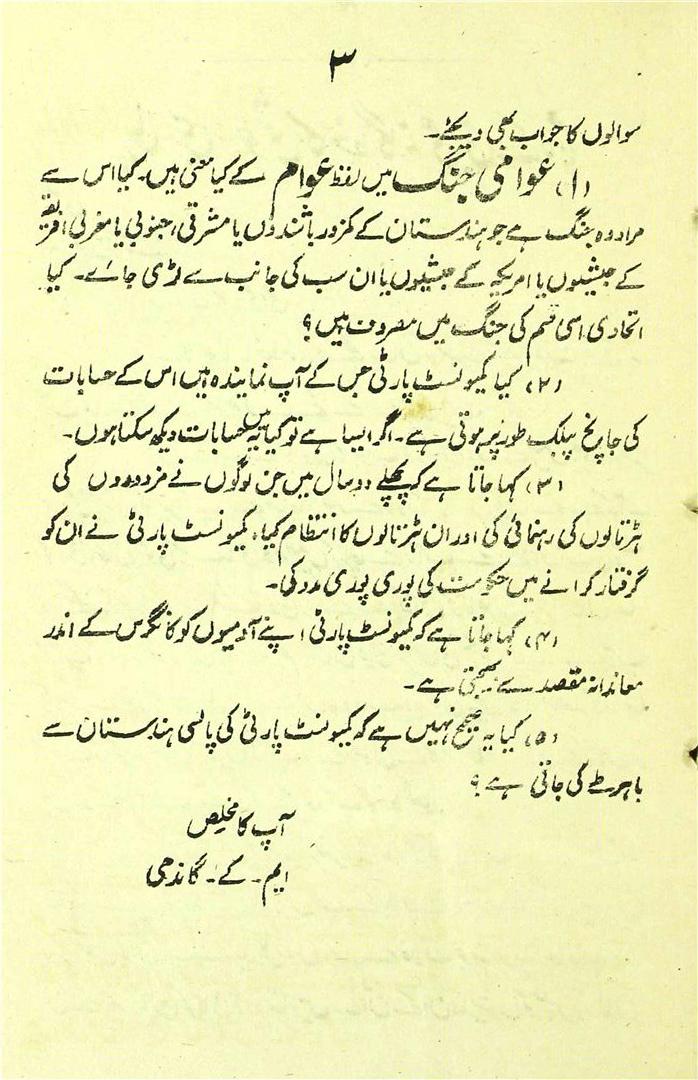 ۳
سوالوں کا جواب بھی دیجئے۔
(۱) عوامی جنگ میں لفظ عوام کے کیا معنی ہیں۔ کیا اس سے
مراد وہ جنگ ہے جو ہندستان کے کمزور باشندوں یا مشرقی، جنوبی یا مغربی افریقہ
کے حبشیوں یا امریکہ کے حبشیوں یا ان سب کی جانب سے لڑی جائے۔ کیا
اتحادی اسی قسم کی جنگ میں مصروف ہیں؟
(۲) کیا کمیونسٹ پارٹی جس کے آپ نمایندہ ہیں اس کے حسابات
کی جانچ پبلک طور پر ہوتی ہے۔ اگر ایسا ہے تو کیا میں یہ حسابات دیکھ سکتا ہوں۔
(۳) کہا جاتا ہے کہ پچھلے دو سال میں جن لوگوں نے مزدوروں کی
ہڑتالوں کی رہنمائی کی اور ان ہڑتالوں کا انتظام کیا، کمیونسٹ پارٹی نے ان کو
گرفتار کرانے میں حکومت کی پوری پوری مدد کی۔
(۴) کہا جاتا ہے کہ کمیونسٹ پارٹی اپنے آدمیوں کو کانگرس کے اندر
معاندانہ مقصد سے بھیجتی ہے۔
(۵) کیا یہ صحیح نہیں ہے کہ کمیونسٹ پارٹی کی پالسی ہندستان سے
باہر طے کی جاتی ہے؟
آپ کا مخلص
ایم۔ کے۔ گاندھی